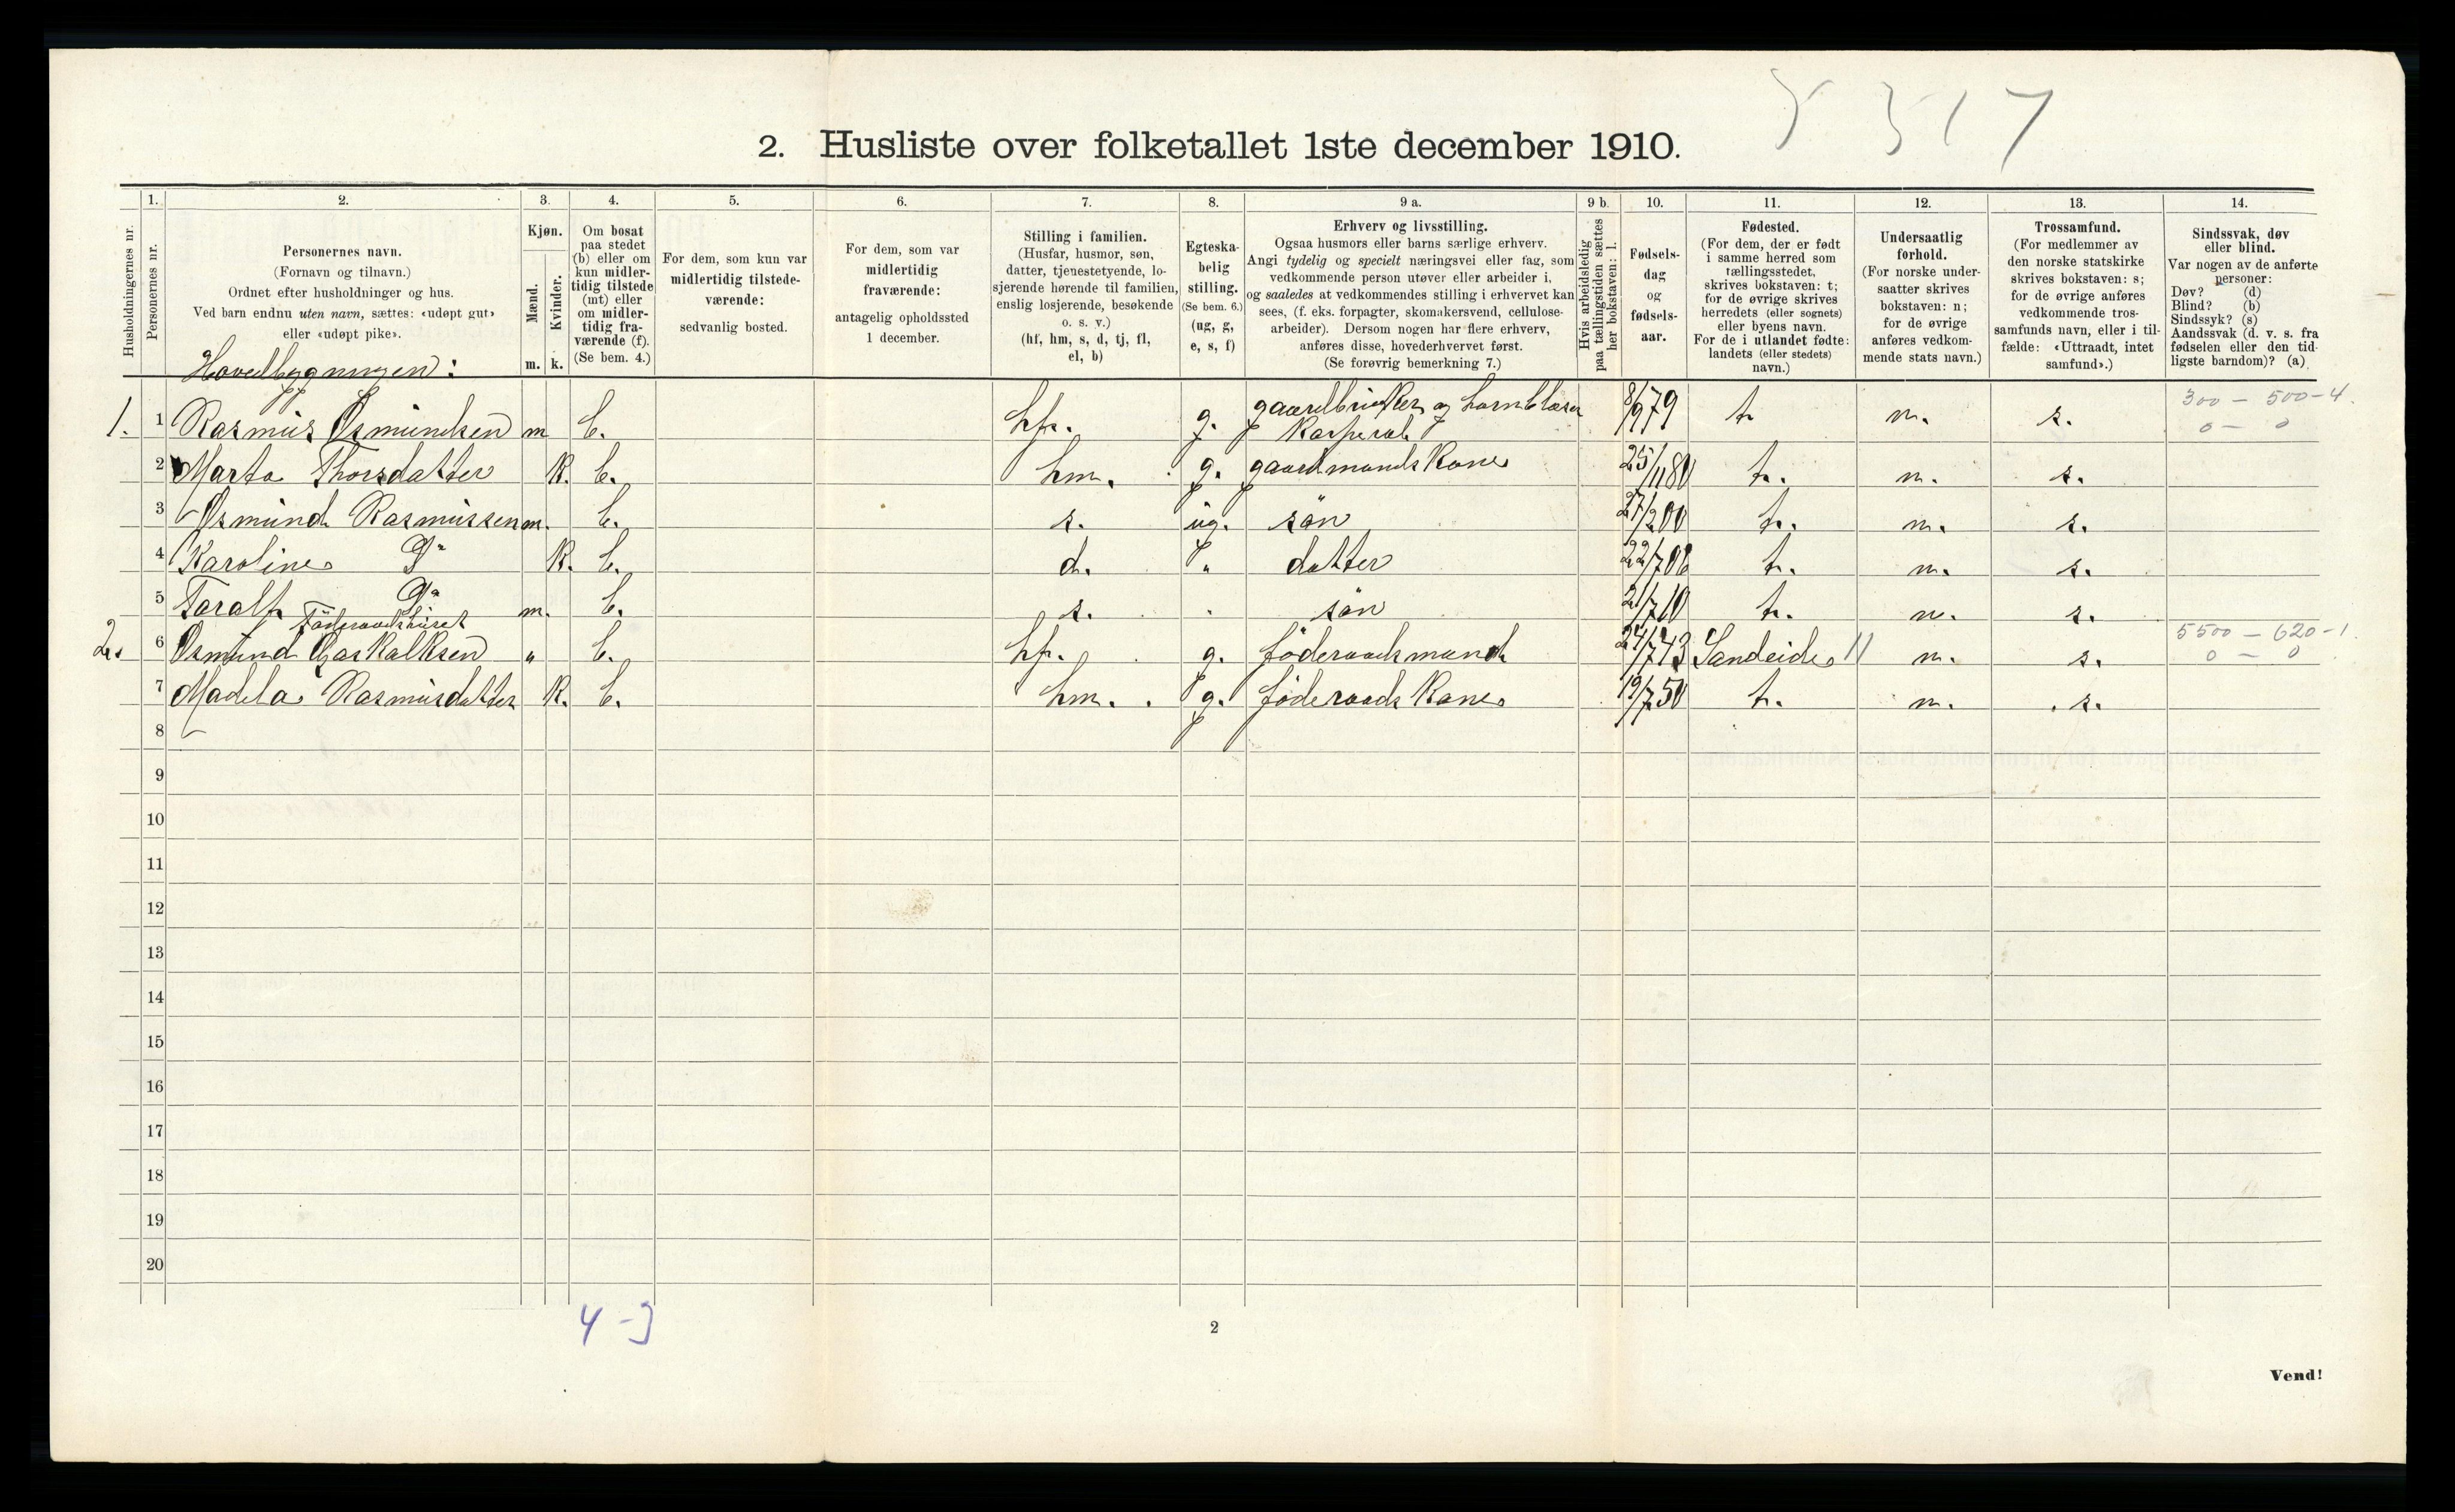 2. Husliste over folketallet 1ste december 1910.
Husholdningernes nr.
1. Personernes nr.
2. Personernes navn.
(Fornavn og tilnavn.)
Ordnet efter husholdninger og hus.
Ved barn endnu uten navn, sættes: «udøpt gut»
eller «udøpt pike».
3. Kjøn.
Mænd. m.
Kvinder. k.
4. Om bosat
paa stedet
(b) eller om
kun midler-
tidig tilstede
(mt) eller
om midler-
tidig fra-
værende (f).
(Se bem. 4.)
5. For dem, som kun var
midlertidig tilstede-
værende:
sedvanlig bosted.
6. For dem, som var
midlertidig
fraværende:
antagelig opholdssted
1 december.
7. Stilling i familien.
(Husfar, husmor, søn,
datter, tjenestetyende, lo-
sjerende hørende til familien,
enslig losjerende, besøkende
o. s. v.)
(hf, hm, s, d, tj, fl,
el, b)
8. Egteska-
belig
stilling.
(Se bem. 6.)
(ug, g,
e, s, f)
9 a. Erhverv og livsstilling.
Ogsaa husmors eller barns særlige erhverv.
Angi tydelig og specielt næringsvei eller fag, som
vedkommende person utøver eller arbeider i,
og saaledes at vedkommendes stilling i erhvervet kan
sees, (f. eks. forpagter, skomakersvend, cellulose-
arbeider). Dersom nogen har flere erhverv,
anføres disse, hovederhvervet først.
(Se forøvrig bemerkning 7.)
9 b. Hvis arbeidsledig
paa tællingstiden sættes
her bokstaven: l.
10. Fødsels-
dag
og
fødsels-
aar.
11. Fødested.
(For dem, der er født
i samme herred som
tællingsstedet,
skrives bokstaven: t;
for de øvrige skrives
herredets (eller sognets)
eller byens navn.
For de i utlandet fødte:
landets (eller stedets)
navn.)
12. Undersaatlig
forhold.
(For norske under-
saatter skrives
bokstaven: n;
for de øvrige
anføres vedkom-
mende stats navn.)
13. Trossamfund.
(For medlemmer av
den norske statskirke
skrives bokstaven: s;
for de øvrige anføres
vedkommende tros-
samfunds navn, eller i til-
fælde: «Uttraadt, intet
samfund».)
14. Sindssvak, døv
eller blind.
Var nogen av de anførte
personer:
Døv? (d)
Blind? (b)
Sindssyk? (s)
Aandssvak (d. v. s. fra
fødselen eller den tid-
ligste barndom)? (a)
Hovedbygningen:
1. 1 Rasmus Osmundsen m b. hf. g. gaardbruker og hornblæser 8/9 79 t n. s. 300 - 500-4.
Korporal 0 - 0
2 Marta Thorsdatter k. b. hm. g. gaardmandskone 25/11 80 t. n. s.
3 Osmund Rasmussen m. b. s. ug. søn 27/2 00 t. n. s.
4 Karoline Do k. b. d. " datter 22/7 08 t. n. s.
5 Toralf Do m. b. s. " søn 21/7 10 t. n. s.
Föderaadshuset
2. 6 Osmund Gaskalksen " b. hf. g. föderaadsmand 24/7 43 Sandeide 11 n. s. 5500 - 620-1.
0 - 0
7 Madela Rasmusdatter k. b. hm. g. föderaadskone 19/7 50 t. n. s.
8
9
10
11
12
13
14
15
16
17
18
19
20
4 - 3
2
Vend!